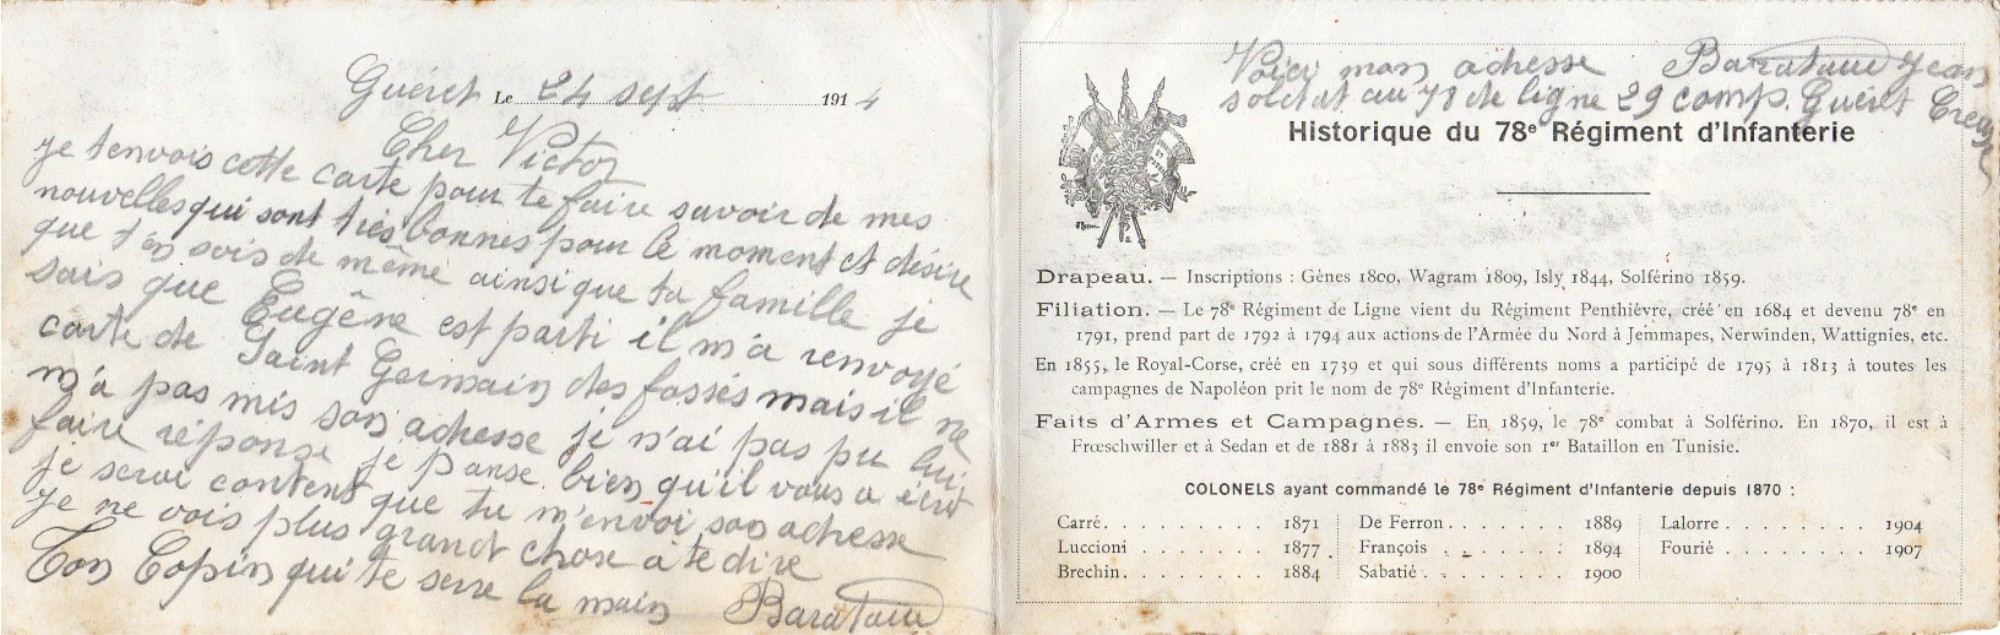 Guéret Le 24 sept 1914
Cher Victor
je t'envois cette carte pour te faire savoir de mes
nouvelles qui sont très bonnes pour le moment et désire
que t'en sois de même ainsi que ta famille je
sais que Eugêne est parti il m'a renvoyé
carte de Saint Germain des fossés mais il ne
m'a pas mis son adresse je n'ai pas pu lui
faire réponse je panse bien qu'il vous a écrit
je serai content que tu m'envoi son adresse
Je ne vois plus grand chose a te dire
Ton Copin qui te serre la main Barataud
Voici mon adresse Barataud Jean
soldat au 78 de ligne 29 comp. Guéret Creuse
Historique du 78e Régiment d'Infanterie
Drapeau. — Inscriptions : Gênes 1800, Wagram 1809, Isly 1844, Solférino 1859.
Filiation. — Le 78e Régiment de Ligne vient du Régiment Penthièvre, créé en 1684 et devenu 78e en
1791, prend part de 1792 à 1794 aux actions de l'Armée du Nord à Jemmapes, Nerwinden, Wattignies, etc.
En 1855, le Royal-Corse, créé en 1739 et qui sous différents noms a participé de 1795 à 1813 à toutes les
campagnes de Napoléon prit le nom de 78e Régiment d'Infanterie.
Faits d'Armes et Campagnes. — En 1859, le 78e combat à Solférino. En 1870, il est à
Frœschwiller et à Sedan et de 1881 à 1883 il envoie son 1er Bataillon en Tunisie.
COLONELS ayant commandé le 78e Régiment d'Infanterie depuis 1870 :
Carré. . . . . . . . . 1871 De Ferron . . . . . . . 1889 Lalorre . . . . . . . . 1904
Luccioni . . . . . . . 1877 François . . . . . . . . 1894 Fourié . . . . . . . . 1907
Brechin. . . . . . . . 1884 Sabatié . . . . . . . . 1900